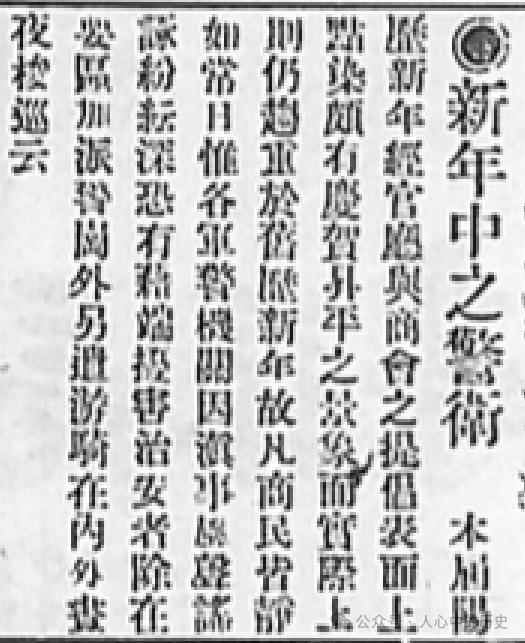 新年中之警衛 本屆陽
歷新年經官廳與商會之提倡表面上
點染頗有慶賀昇平之景象而實際上
則仍趨重於舊歷新年故凡商民皆靜
如常日惟各軍警機關因滇事風聲謠
諑紛紜深恐有藉端擾害治安者除在
要區加派警崗外另遣游騎在內外晝
夜梭巡云
公众号·人心中的历史